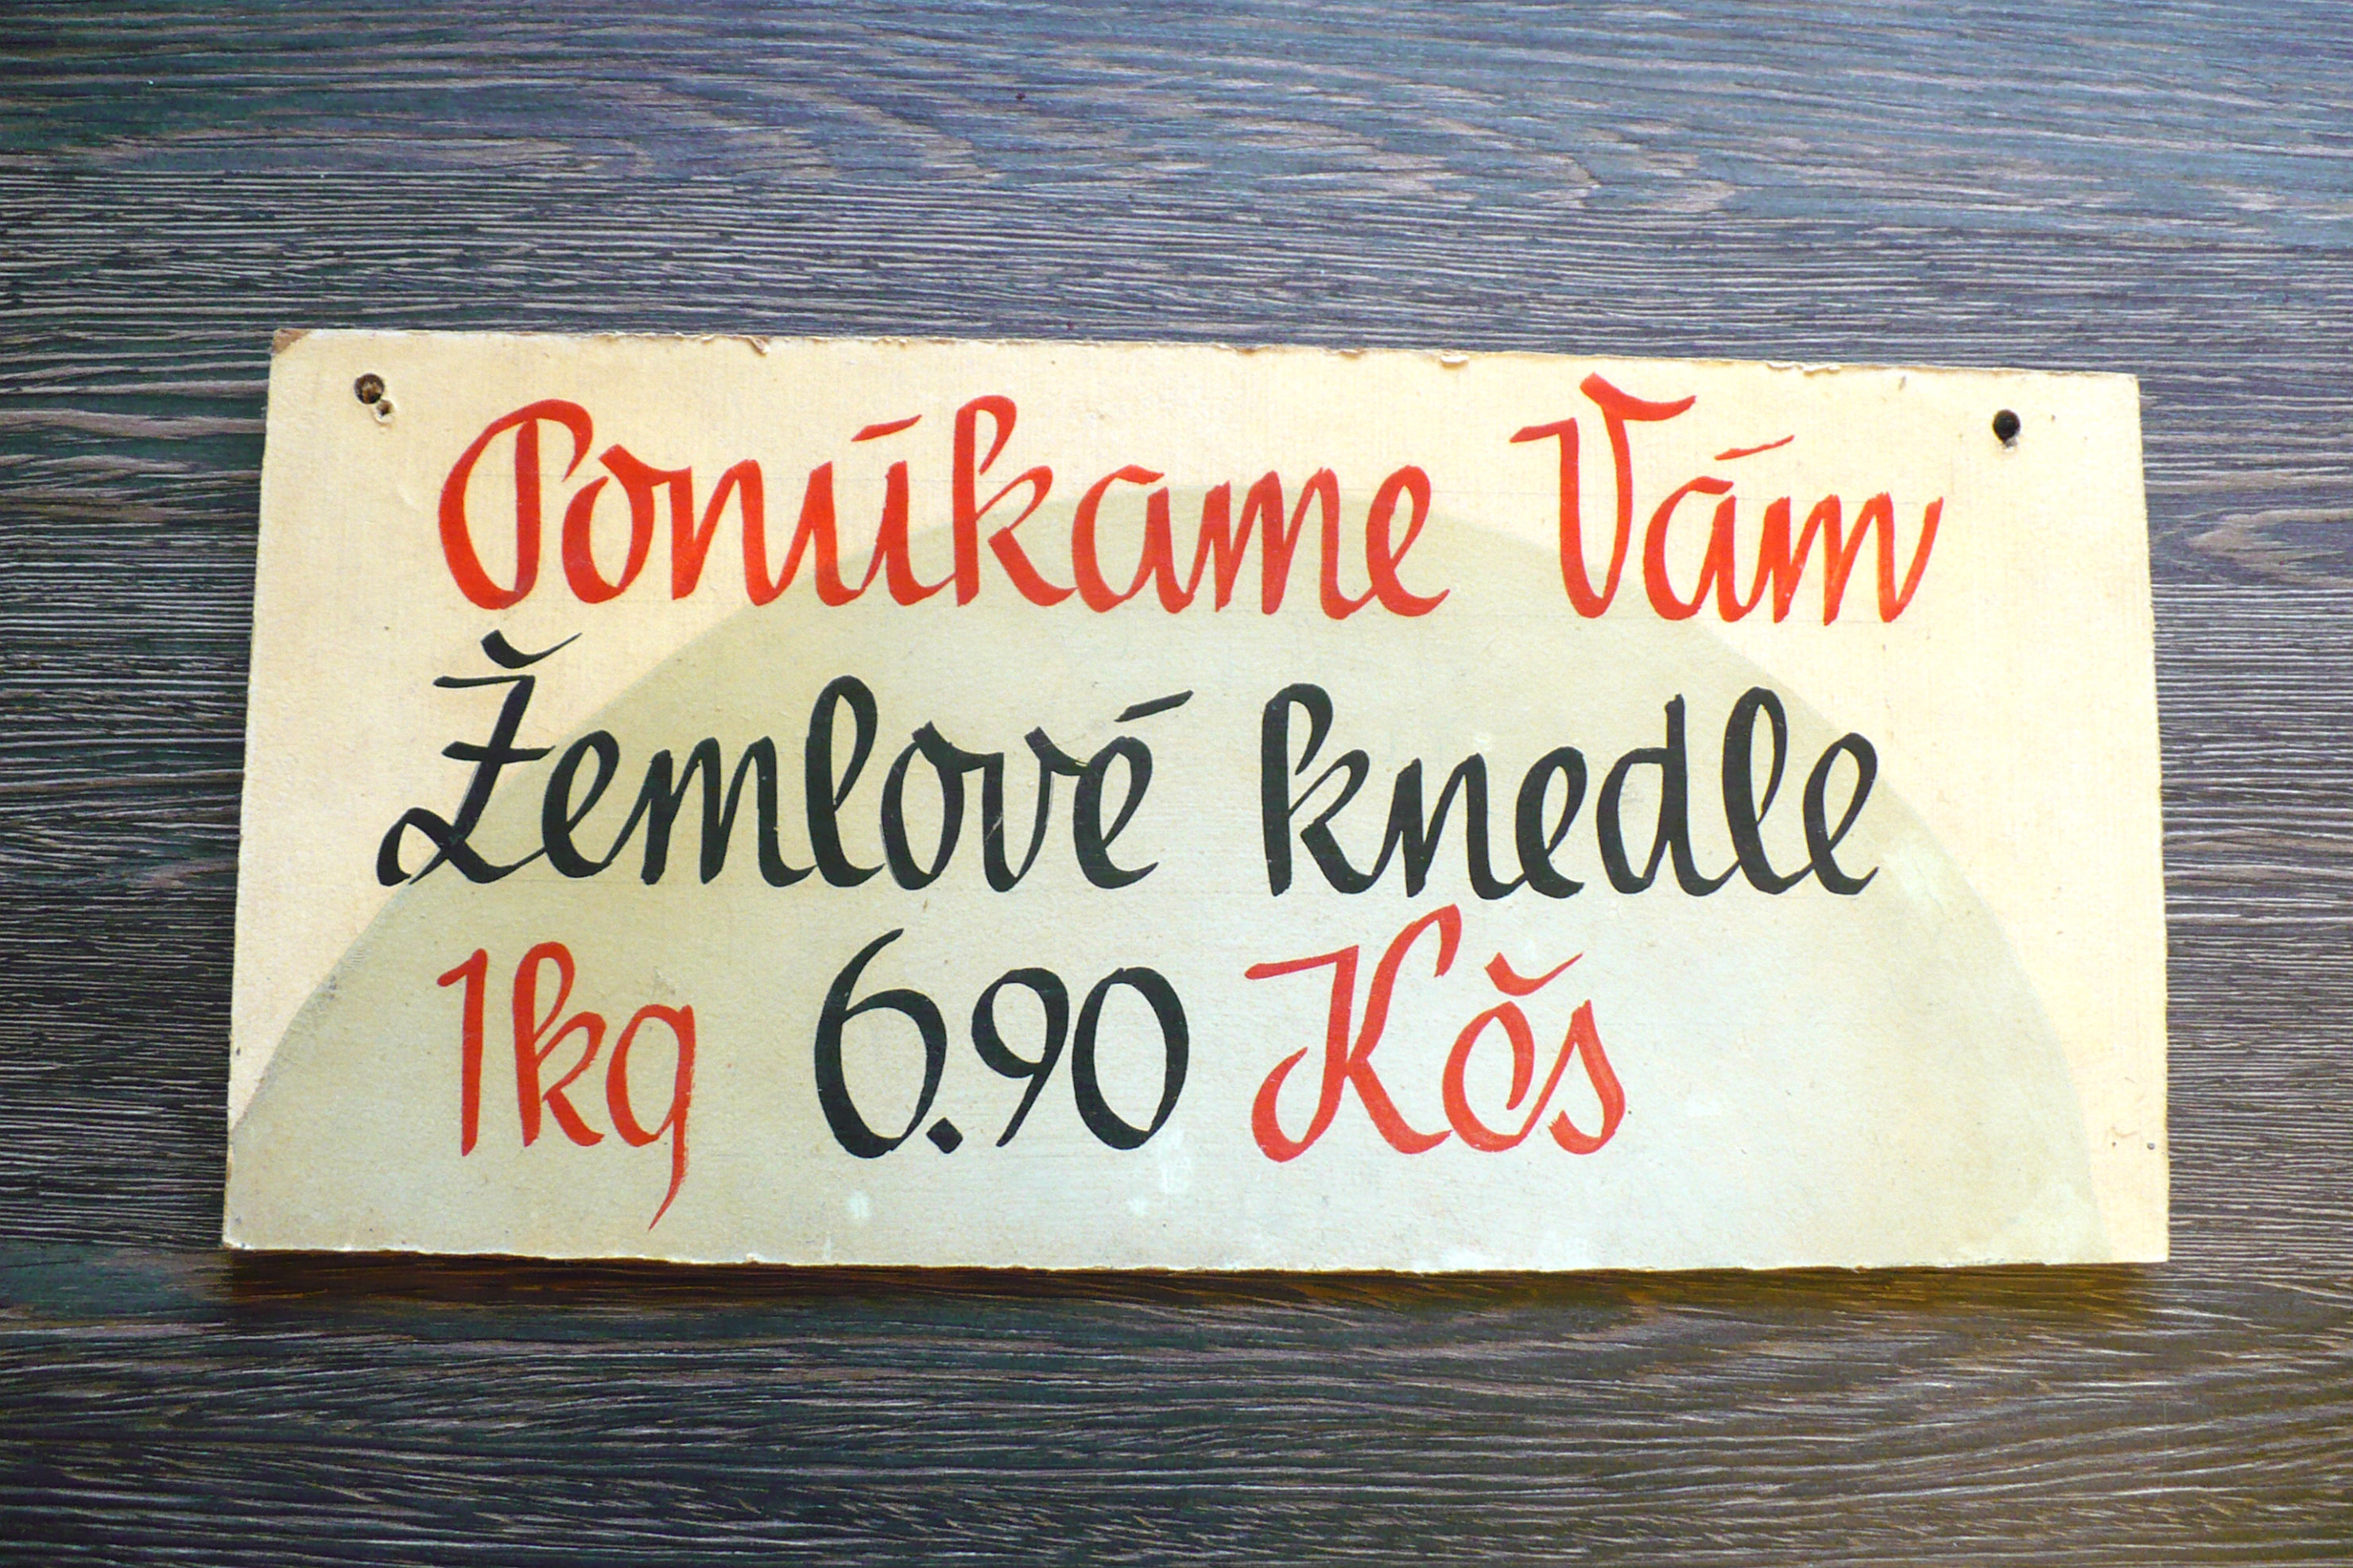 Ponúkame Vám
Žemlové knedle
1kg 6.90 Kčs